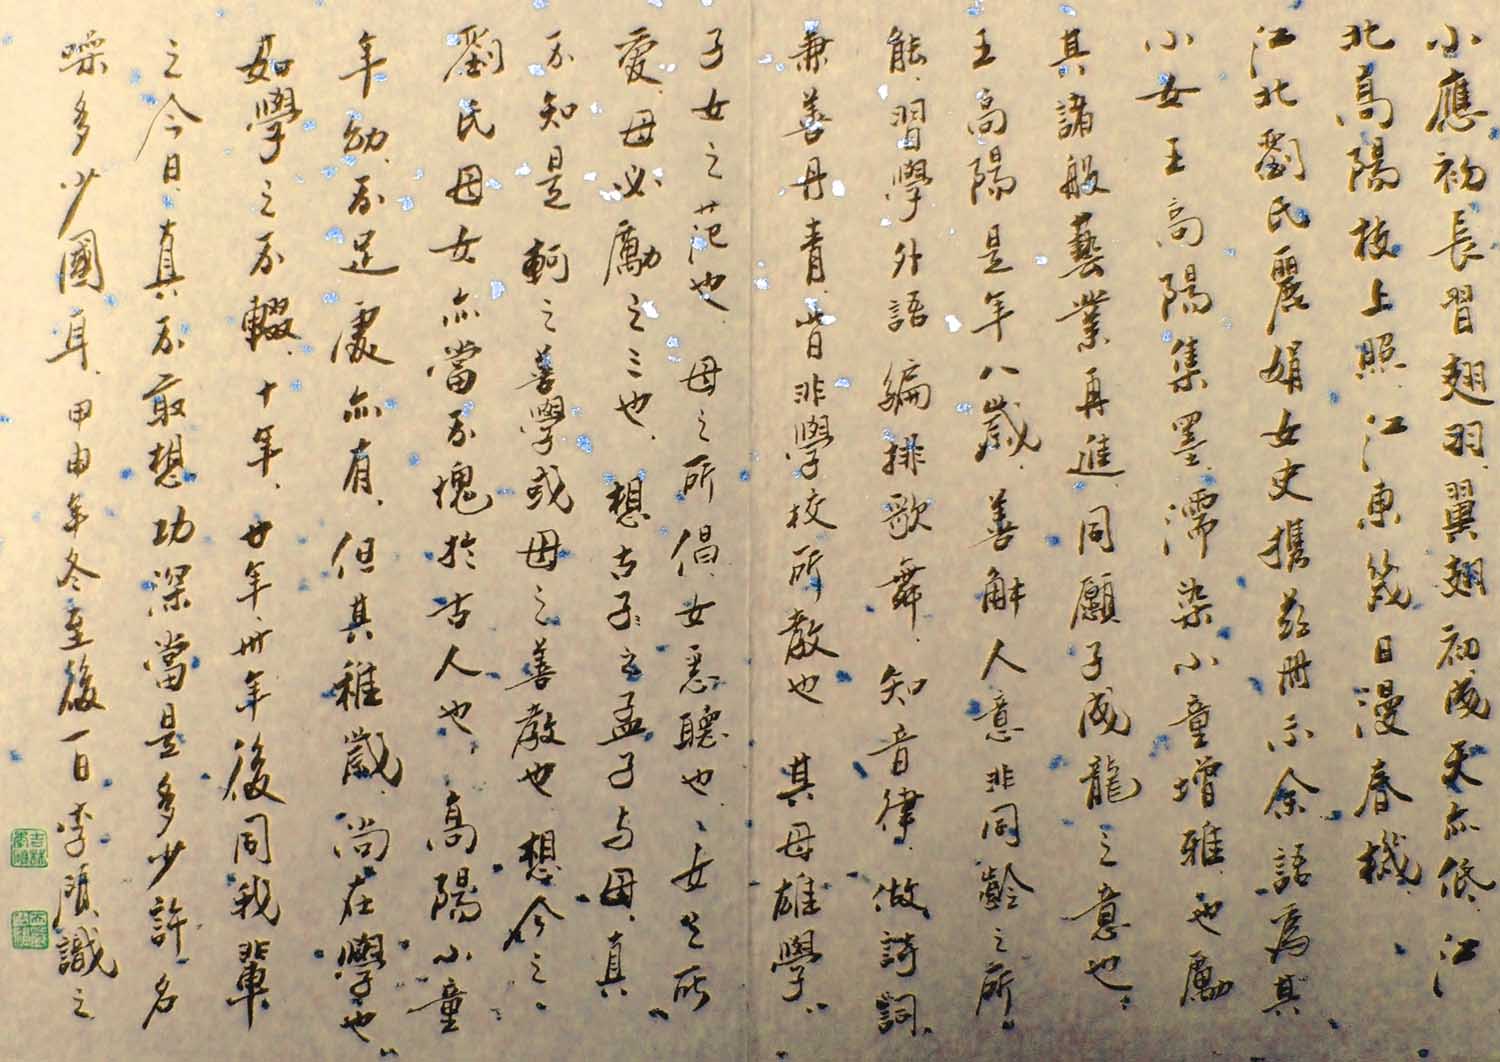 小應初長習翅羽翼翅初成天亦低江
北高陽枝上照江東幾日漫春機
江北劉氏麗娟女史攜茲冊示余語爲其
小女王高陽集墨濡染小童增雅也勵
其諸般藝業再進同願子成龍之意也
王高陽是年八歲善解人意非同齡之所
能習學外語編排歌舞知音律做詩詞
兼善丹青皆非學校所教也其母雄學
子女之范也母之所倡女惡聽也女之所
愛母必勵之三也想古子之孟子与母真
不知是軻之善學或母之善教也想今之
劉氏母女亦當不愧於古人也高陽小童
年幼不足處亦有但其稚歲尚在學也
如學之不輟十年廿年卅年後同我輩
之今日真不敢想功深當是多少許名
噪多少國耳甲申年冬至後一日李 識之